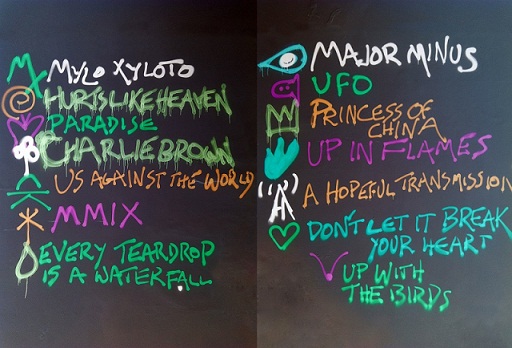 MYLO XYLOTO
HURTS LIKE HEAVEN
PARADISE
CHARLIE BROWN
US AGAINST THE WORLD
MMIX
EVERY TEARDROP
IS A WATERFALL
MAJOR MINUS
UFO
PRINCESS OF
CHINA
UP IN FLAMES
A HOPEFUL TRANSMISSION
DON'T LET IT BREAK
YOUR HEART
UP WITH
THE BIRDS